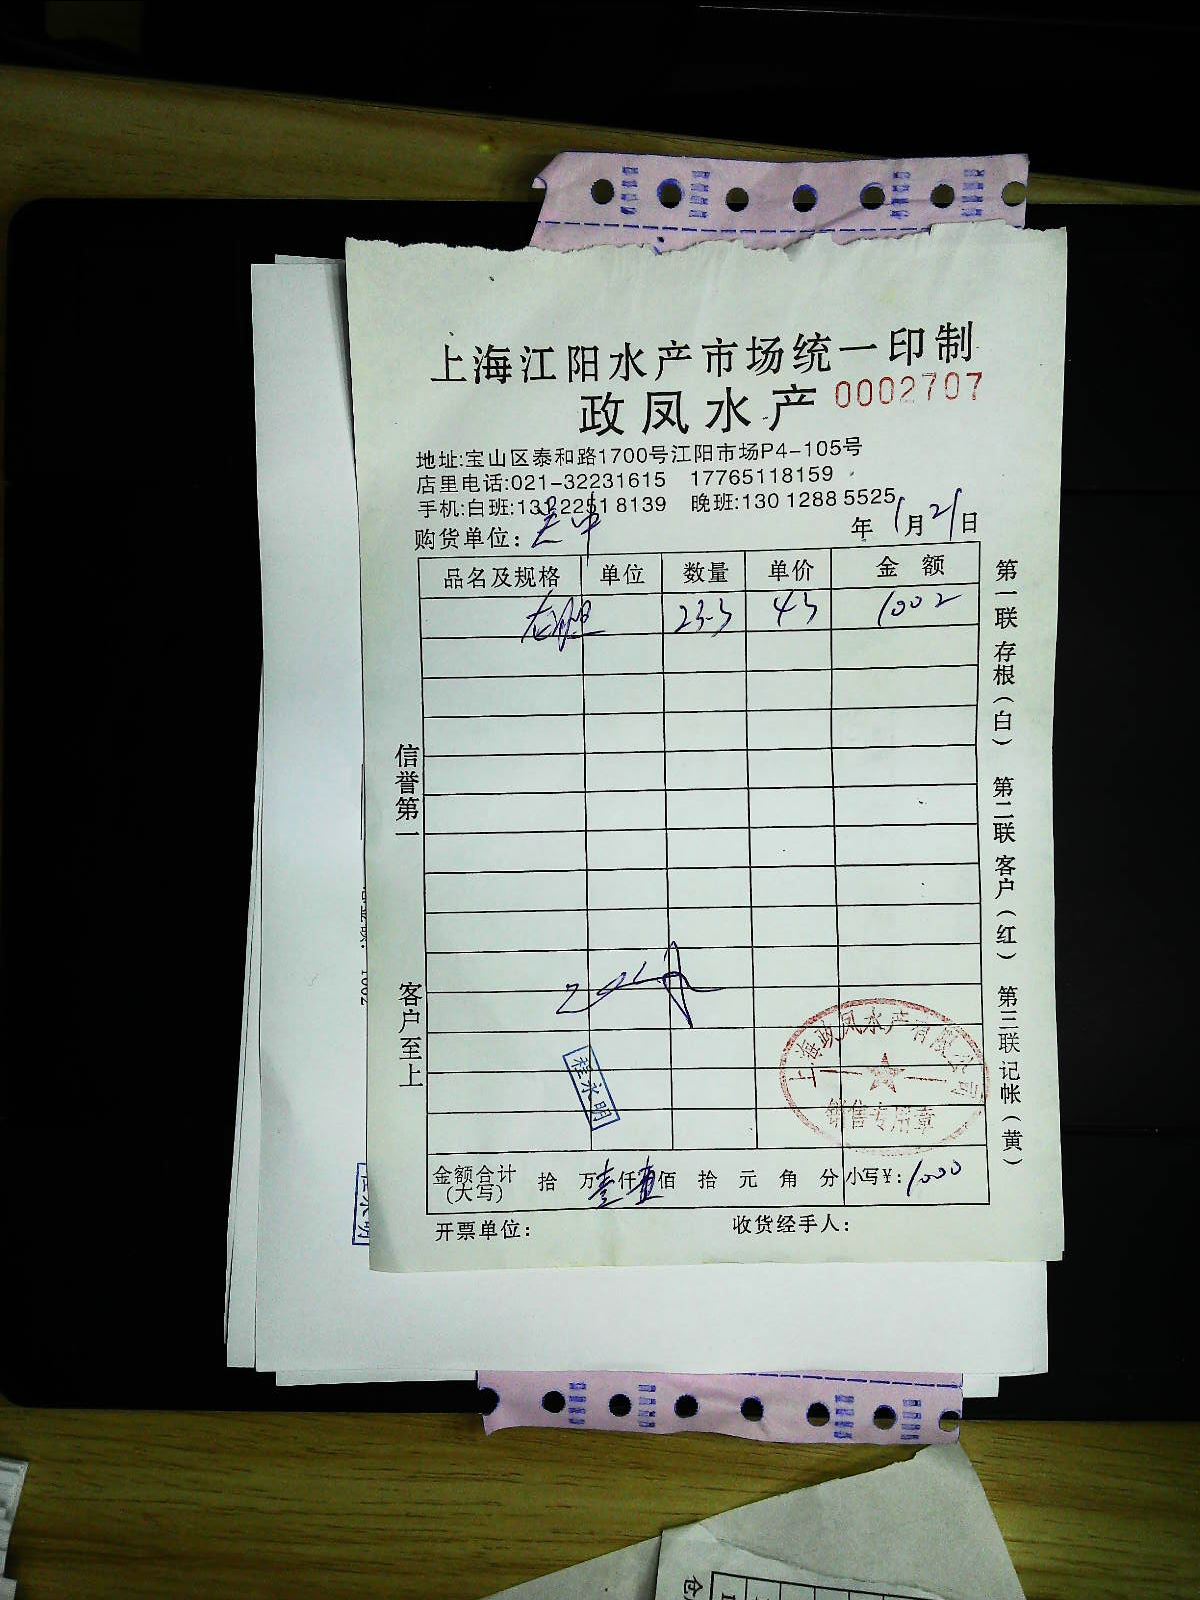 上海江阳水产市场统一印制
政凤水产 0002707
地址:宝山区泰和路1700号江阳市场P4-105号
店里电话:021-32231615 17765118159
手机:白班:13122518139 晚班:13012885525
购货单位: 吴中 年1月21日
品名及规格 单位 数量 单价 金额
龙胆 23.3 43 1002
信誉第一
客户至上
第一联存根(白) 第二联客户(红) 第三联记帐(黄)
程永明
上海政凤水产有限公司
销售专用章
金额合计(大写) 拾 万壹仟 佰 拾 元 角 分 小写¥:1000
开票单位: 收货经手人: